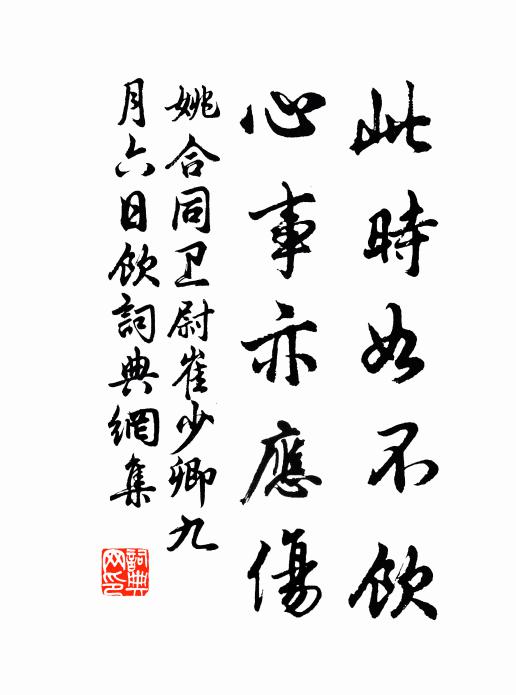 此時如不飲
心事亦應傷
姚合同卫尉崔少卿九
月六日飲詞典網集
詞典
网印